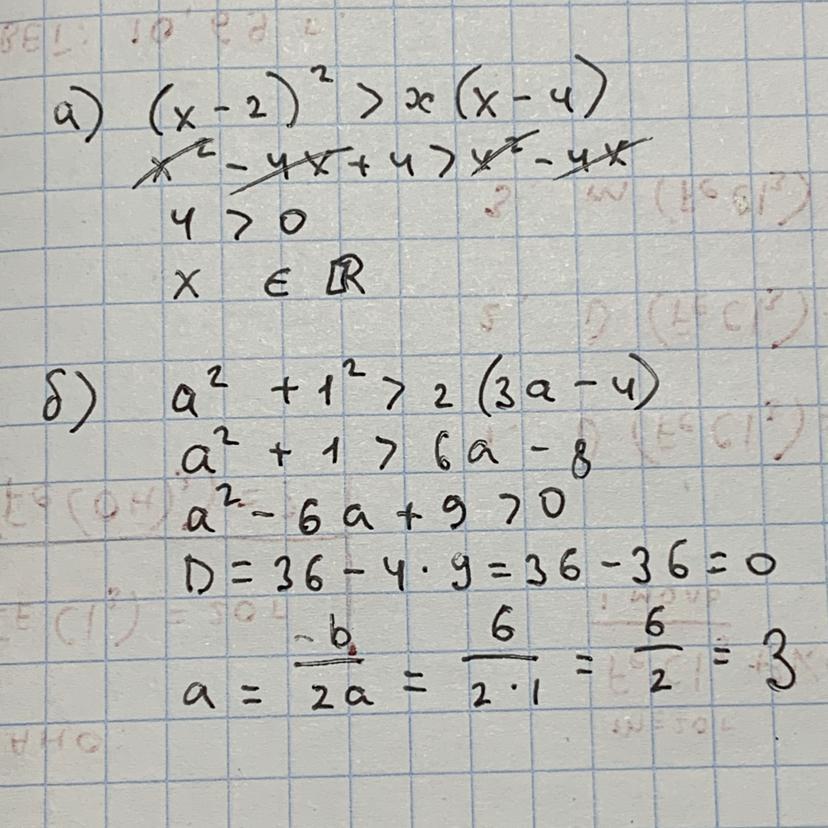 а) (x - 2)² > x(x - 4)
x² - 4x + 4 > x² - 4x
4 > 0
x ∈ ℝ
б) a² + 1² > 2(3a - 4)
a² + 1 > 6a - 8
a² - 6a + 9 > 0
D = 36 - 4 · 9 = 36 - 36 = 0
a = -b/2a = 6/2·1 = 6/2 = 3